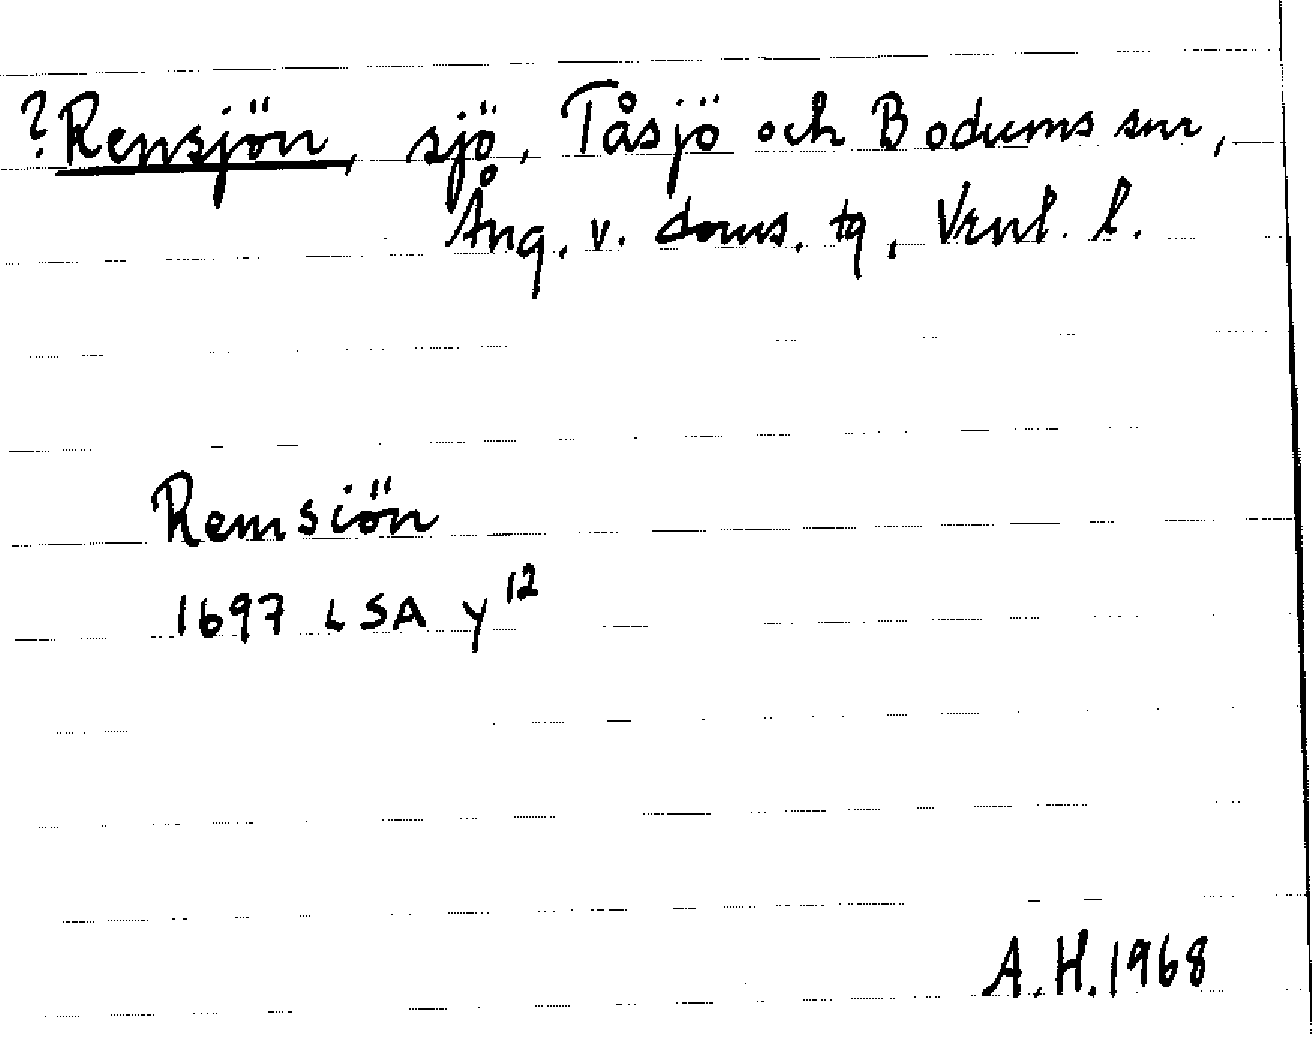 ? Rensjön, sjö, Tåsjö och Bodums snr,
Ång. v. doms. tg, Vrnl. l.
Remsiön
1697 LSA y 12
A.H. 1968